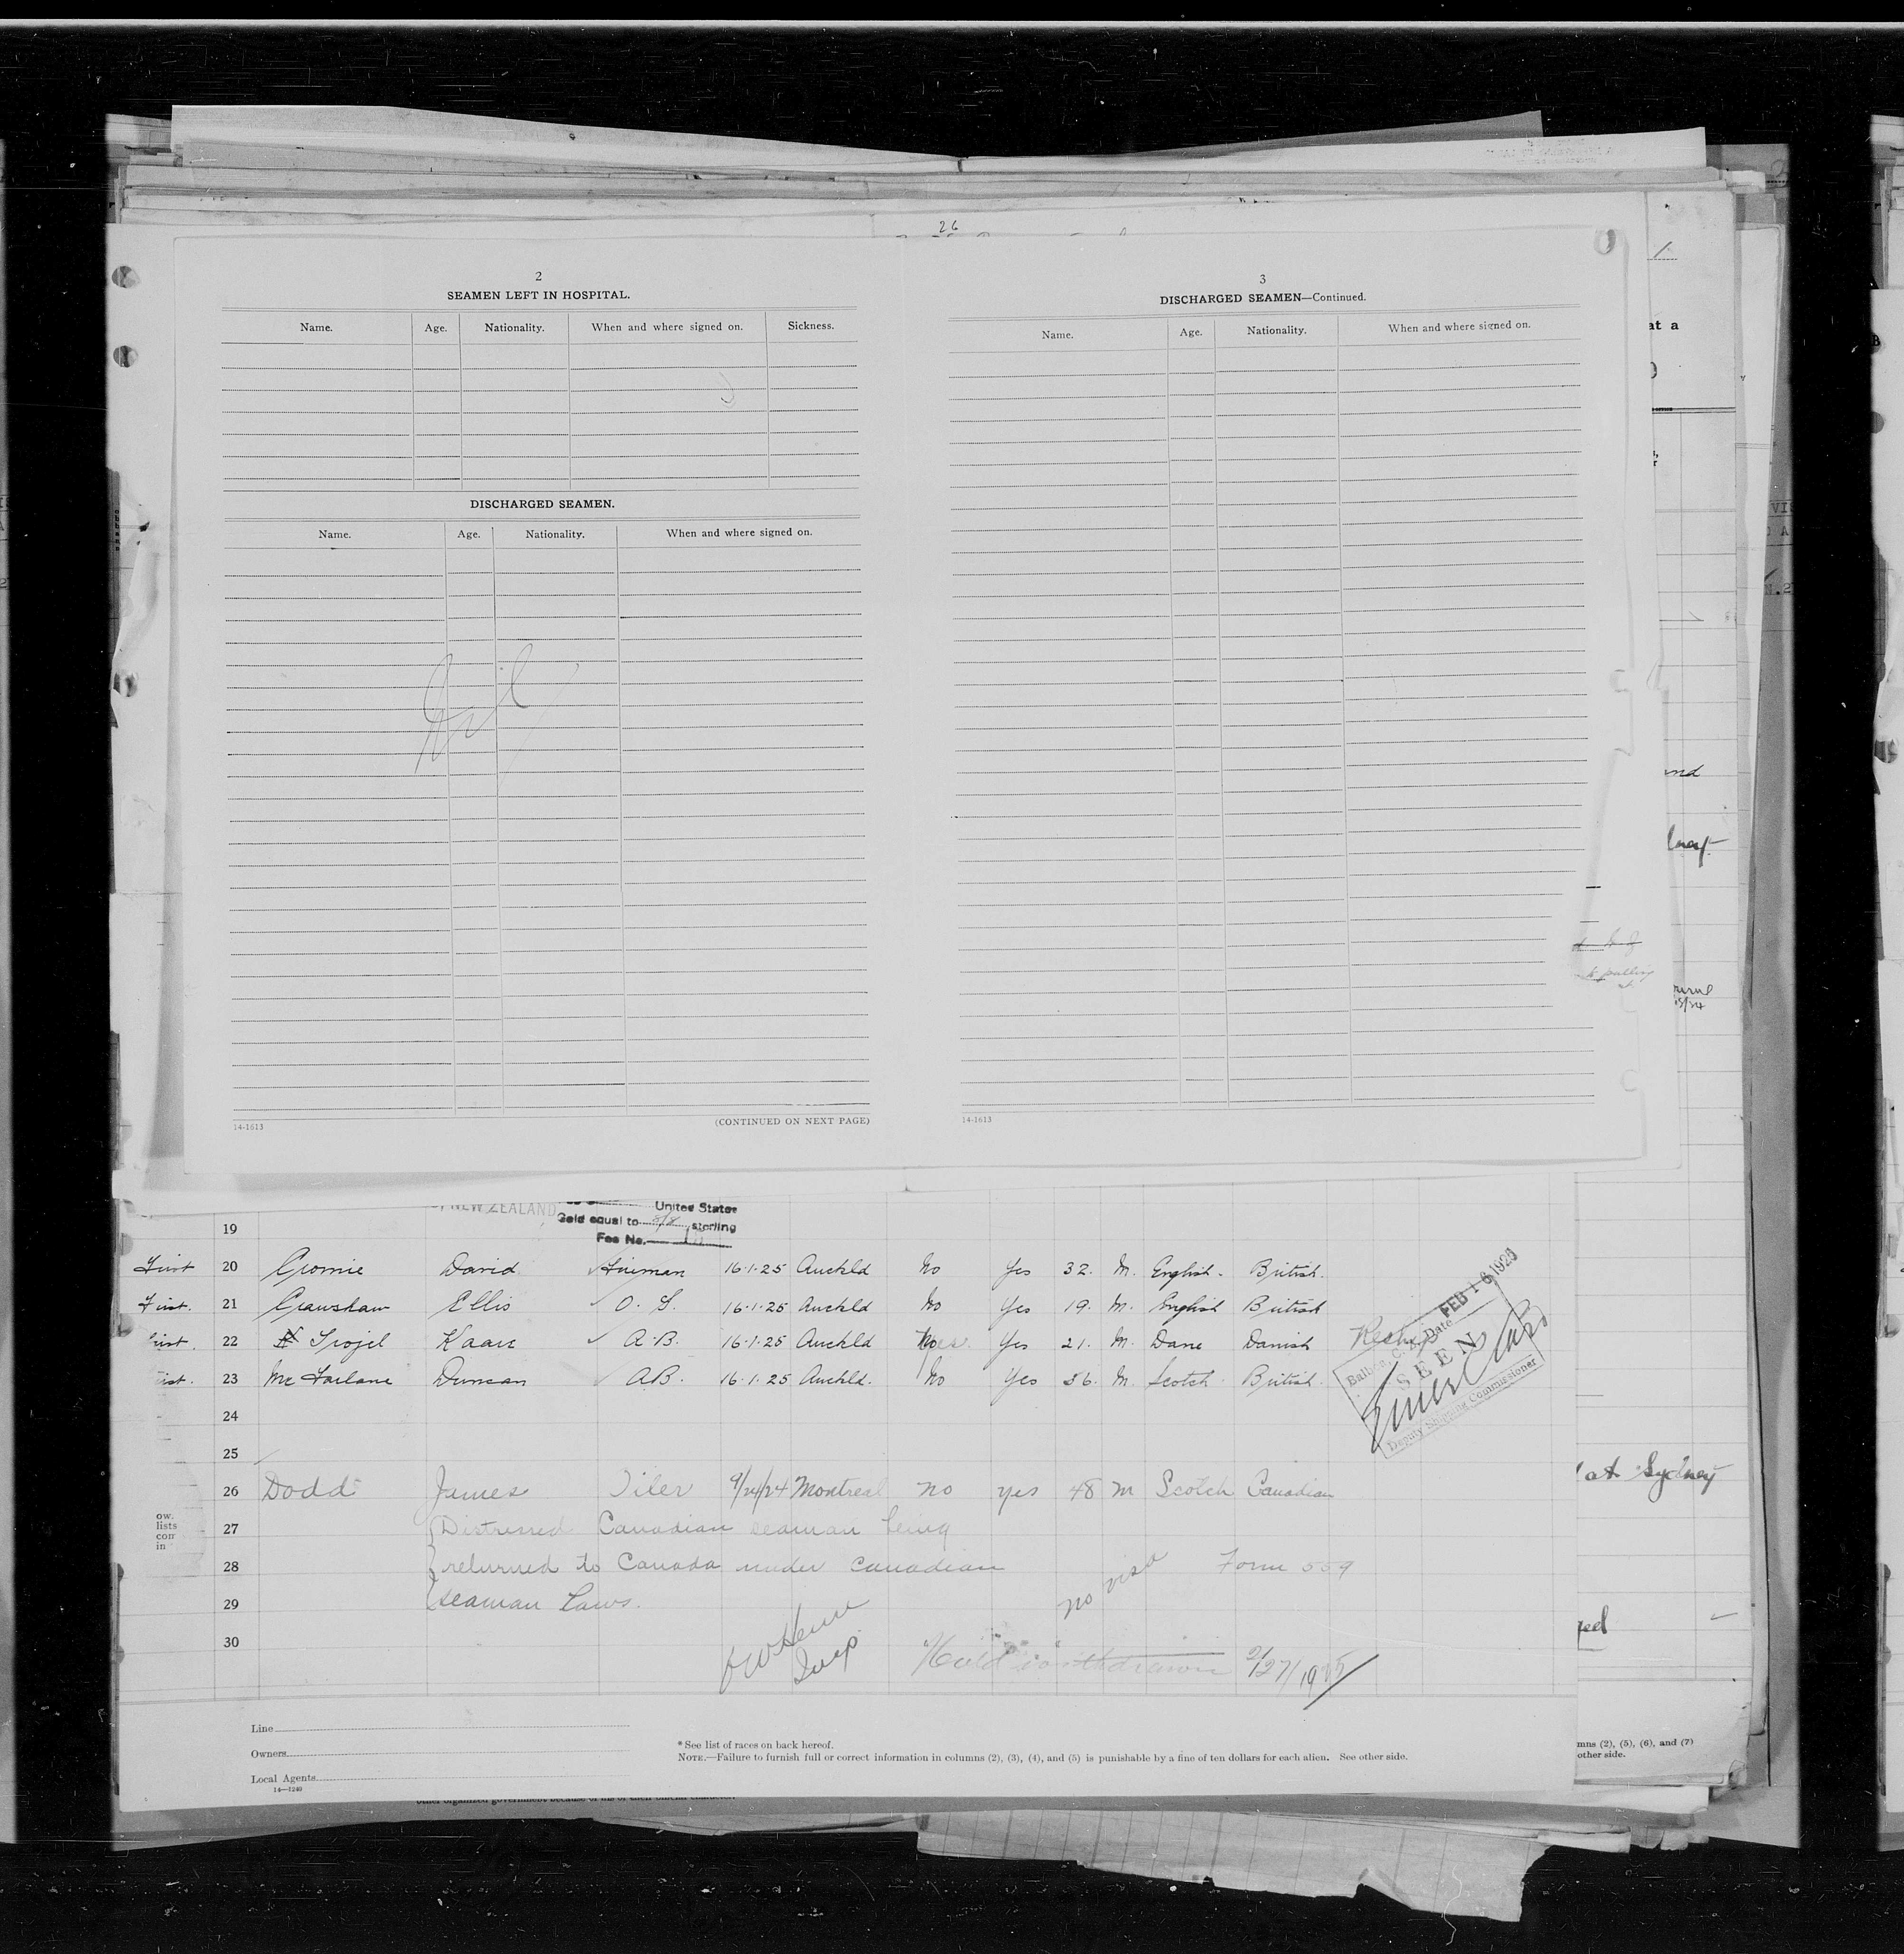 26
2
SEAMEN LEFT IN HOSPITAL.
Name. Age. Nationality. When and where signed on. Sickness.
DISCHARGED SEAMEN.
Name. Age. Nationality. When and where signed on.
Nil
14-1613 (CONTINUED ON NEXT PAGE)
3
DISCHARGED SEAMEN—Continued.
Name. Age. Nationality. When and where signed on.
14-1613
at a
and
NEW ZEALAND
United States
Gold equal to sterling
Fee No.
19
First 20 Cromie David Fireman 16.1.25 Auckld No Yes 32. M. English. British.
First. 21 Crawshaw Ellis O. S. 16.1.25 Auckld No Yes 19. M. English British
22 Kaare A.B. 16.1.25 Auckld Yes 21. M. Dane Danish
23 Mc Farlane Duncan A.B. 16.1.25 Auckld. No Yes 36. M. Scotch British.
FEB 16 1925
Date
Balboa, C. Z.
SEEN
Deputy Shipping Commissioner
24
25
26 Dodd James Oiler 9/24/24 Montreal no yes 48 M Scotch Canadian
27 Distressed Canadian seaman being
28 returned to Canada under Canadian
29 seaman Laws.
no visa Form 559
30
"Hold" withdrawn 2/27/1925
at Sydney
ow.
lists
in
Line
Owners
Local Agents
14—1240
* See list of races on back hereof.
NOTE.—Failure to furnish full or correct information in columns (2), (3), (4), and (5) is punishable by a fine of ten dollars for each alien. See other side.
mns (2), (5), (6), and (7)
other side.